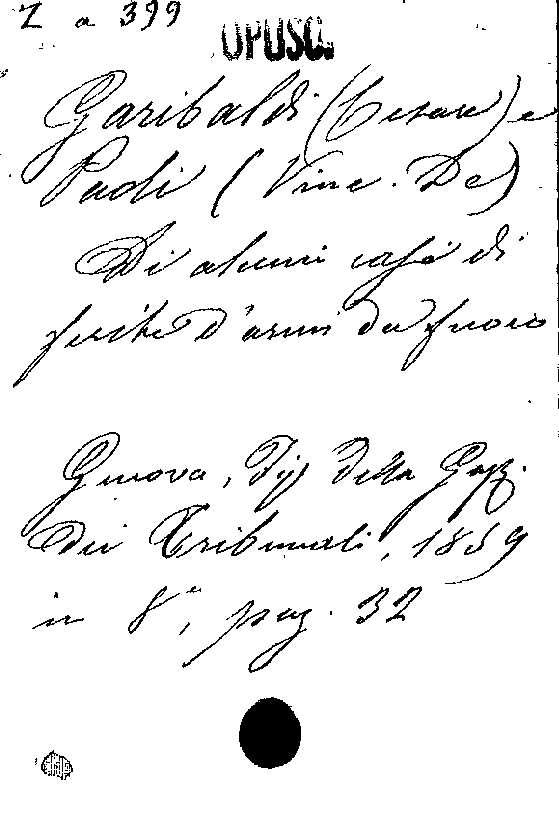 Z a 399
OPUSC.
Garibaldi (Cesare) e
Paoli (Vinc. De)
Di alcuni casi di
ferite d'armi da fuoco
Genova, Tip. della Gazz.
dei Tribunali, 1859
in 8°, pag. 32